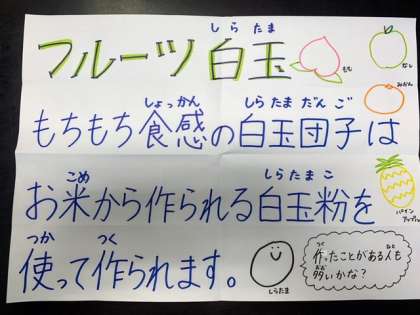 しらたま
フルーツ白玉
もも
なし
みかん
しょっかん しらたまだんご
もちもち食感の白玉団子は
こめ しらたまこ
お米から作られる白玉粉を
パインアップル
つか つく
使って作られます。
しらたま
つく ひと
作ったことがある人も
おお
多いかな?